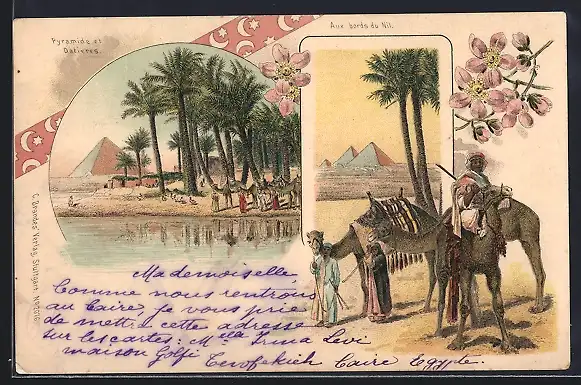 Pyramide et
Datiéres.
Aux bords du Nil.
C. Brandes' Verlag, Stuttgart.
Mademoiselle
Comme nous rentrons
au Caire, je vous prie
de mettre cette adresse
sur les cartes: Melle Irma Levi
maison Golfi Tewfekieh Caire Egypte.